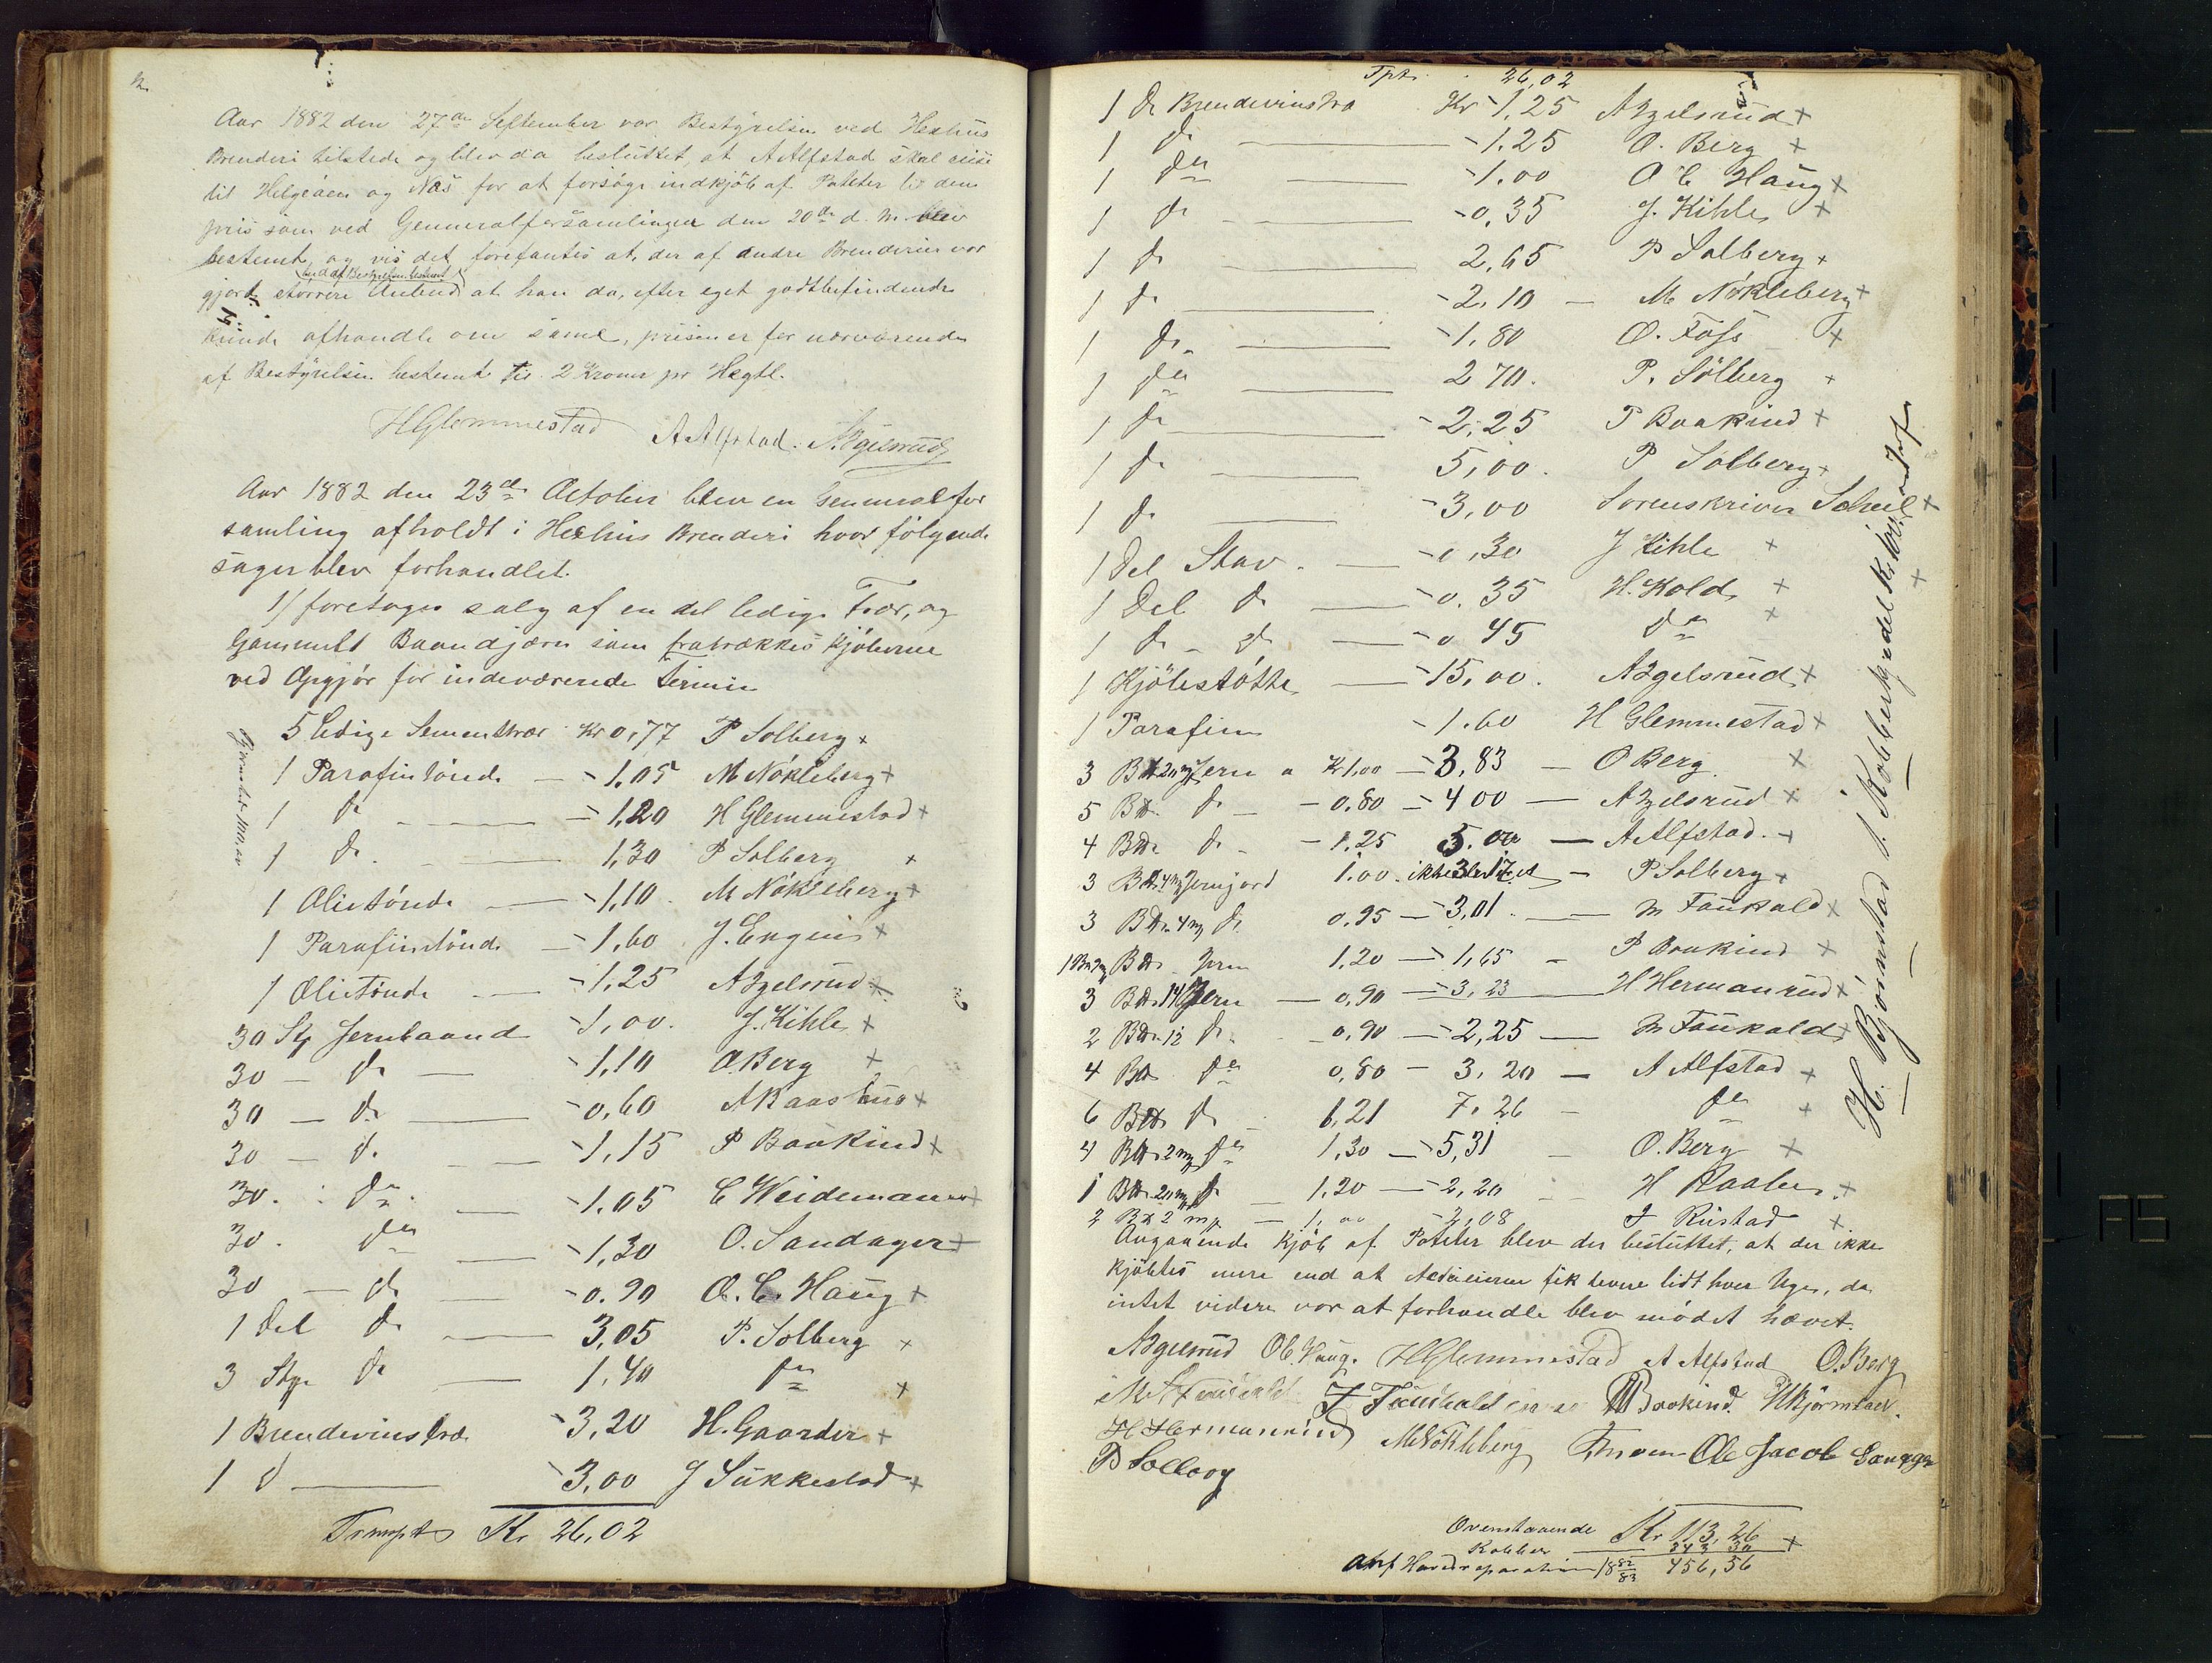 Aar 1882 den 27de September var Bestyrelsen ved Hexhus
Brenderi tilstede og blev da besluttet, at A Alfstad skal reise
til Helgøen og Næs for at forsøge indkjøb af Poteter til den
priis som ved Gennerolforsamlingen den 20de d. M. blev
bestemt, og vis det forefantes at, der af andre Brenderier var
end af Bestyrelsen bestemt
gjordt større Anbud at han da, efter eget godtbefindende
kunde afhandle om same, prisen er for nærværende
af Bestyrelsen bestemt til 2 Kroner pr Hegtl.
H Glemmestad A Alfstad. A Gjelsrud
Aar 1882 den 23de October blev en Genneralfor
samling afholdt i Hexhus Brenderi hvor følgende
sager blev forhandlet.
1/ foretages salg af en del ledige Træ, og
Gammelt Baandjærn som fratrækkes Kjøberne
ved Opgjør for indeværende termin
5 Ledige Sementtræer Kr 0,77 P Solberg x
1 Parafintønde — - 1,05 M Nökleberg x
1 do — - 1,20 H Glemmestad x
1 do. — 1,30 P Solberg x
1 Olietønde — - 1,10 M Nökleberg x
1 Parafintønde — - 1,60 J. Engeius x
1 Olietønde — - 1,25 A Gjelsrud x
30 Stp Jernbaand - 1,00. J. Kihle x
30 — do — - 1,10 O Berg x
30 — do — - 0,60 A Kaashus x
30 — do — - 1,15 P Baakind x
30. do - 1.05 C Weidemann x
30. do — - 1,30 O. Sandager x
30 — do — - 0.90 O. C. Haug x
1 Del do — 3,05 P. Solberg x
3 Stp do — 1,40 do x
1 Brendevinstræ - 3,20 H. Gaarder x
1 do — - 3,00 J Sukkestad x
Transpt Kr 26,02
Tpt. 26,02
1 do Brendevinstræ Kr - 1,25 A Gjelsrud x
1 do — - 1.25 O. Berg x
1 do — - 1.00 O C Haug x
1 do — - 0,35 J. Kihle x
1 do — 2,65 P Solberg x
1 do — - 2,10 — M. Nökleberg x
1 do — - 1,80 O. Foss x
1 do — 2 70. P. Solberg x
1 do — - 2,25 P Baakind x
1 do — 5,00. P Solberg x
1 do — - 3,00 Sorenskriver Scheel x
1 Del Stav. — - 0,30 J Kihle x
1 Del do — - 0.35 H. Kold x
1 do - do — - 0 45 do x
1 Kjølestøtte — - 15,00. A Gjelsrud x
1 Parafin - 1.60 H Glemmestad x
3 B 20 Jern a Kr 1,00 - 3,83 — O Berg. x
5 B do — - 0.80 - 4 00 — A Gjelsrud x
4 B do - - 1.25 5.00 — A Alfstad. x
3 B 4 1.00. 3.17 — P Solberg x
3 B 4 do 0,95 - 3,01. — M Faukald x
B Jern 1,20 - 1,65 - P Baakind x
3 B 14 Jern — 0,90 - 3,23 — H Hermanrud x
2 B 12 do. 0,90 - 2,25 — M Faukald x
4 B do 0,80 - 3,20 — A Alfstad x
6 B do - 1,21 7,26 - do x
4 B 2 do 1,30 - 5,31 - O. Berg x
1 B 20 do — 1,20 - 2,20 H Raaber x
2 B 2 — 1,00 - 2,08 J Rustad x
Angaaende Kjøb af Poteter blev der besluttet, at der ikke
kjøbtes mere end at Actieeierne fik levere lidt hver Uge, da
intet videre var at forhandle blev mødet hævet.
A Gjelsrud O C. Haug. H Glemmestad A Alfstad O. Berg
J Faukald P Baakind. H Bjørnstad.
H Hermanrud M Nökleberg Ole Jacob
P Solberg
Ovenstaaende Kr 113,26
Kobber — 343,30 x
456,56
H. Bjørnstad 1. Kobber